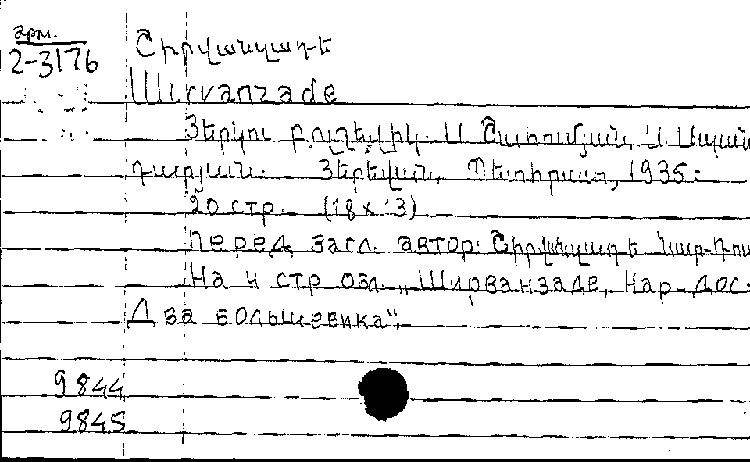 арм.
2-3176
Շիրվանզադե
Шırvanzade
Յերկու բոլշեվիկ. Ս Շահումյան, Ս Սպան
դարյան. Յերեվան, Պետհրատ, 1935:
20 стр. (18x13)
Перед загл. автор: Շիրվանզադե Նար-Դոս
На 4 стр обл. „Ширванзаде, Нар-Дос.
Два большевика“.
9844
9845